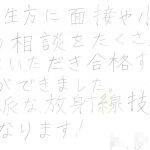 生方に面接や小
の相談をたくさ
いただき合格す
ができました。
派な放射線技
なります!